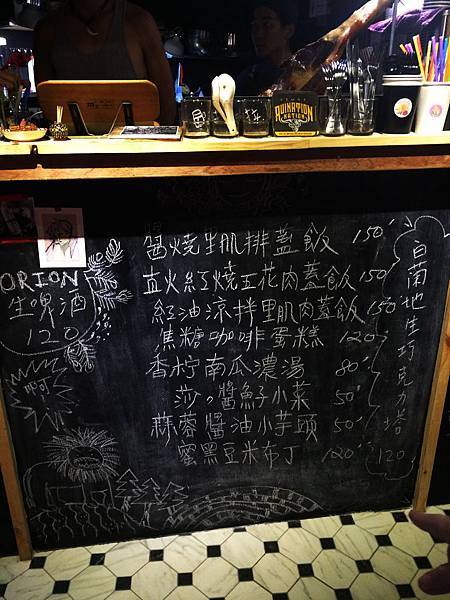 RUINATION
NATION
ORION
生啤酒
120
啊
醬燒牛肌排蓋飯 150
直火紅燒五花肉蓋飯 150
紅油涼拌里肌肉蓋飯 150
焦糖咖啡蛋糕 120
香柠南瓜濃湯 80
莎。醬魚子小菜 50
蒜蓉醬油小芋頭 50
蜜黑豆米布丁 120
白蘭地生巧克力塔 120